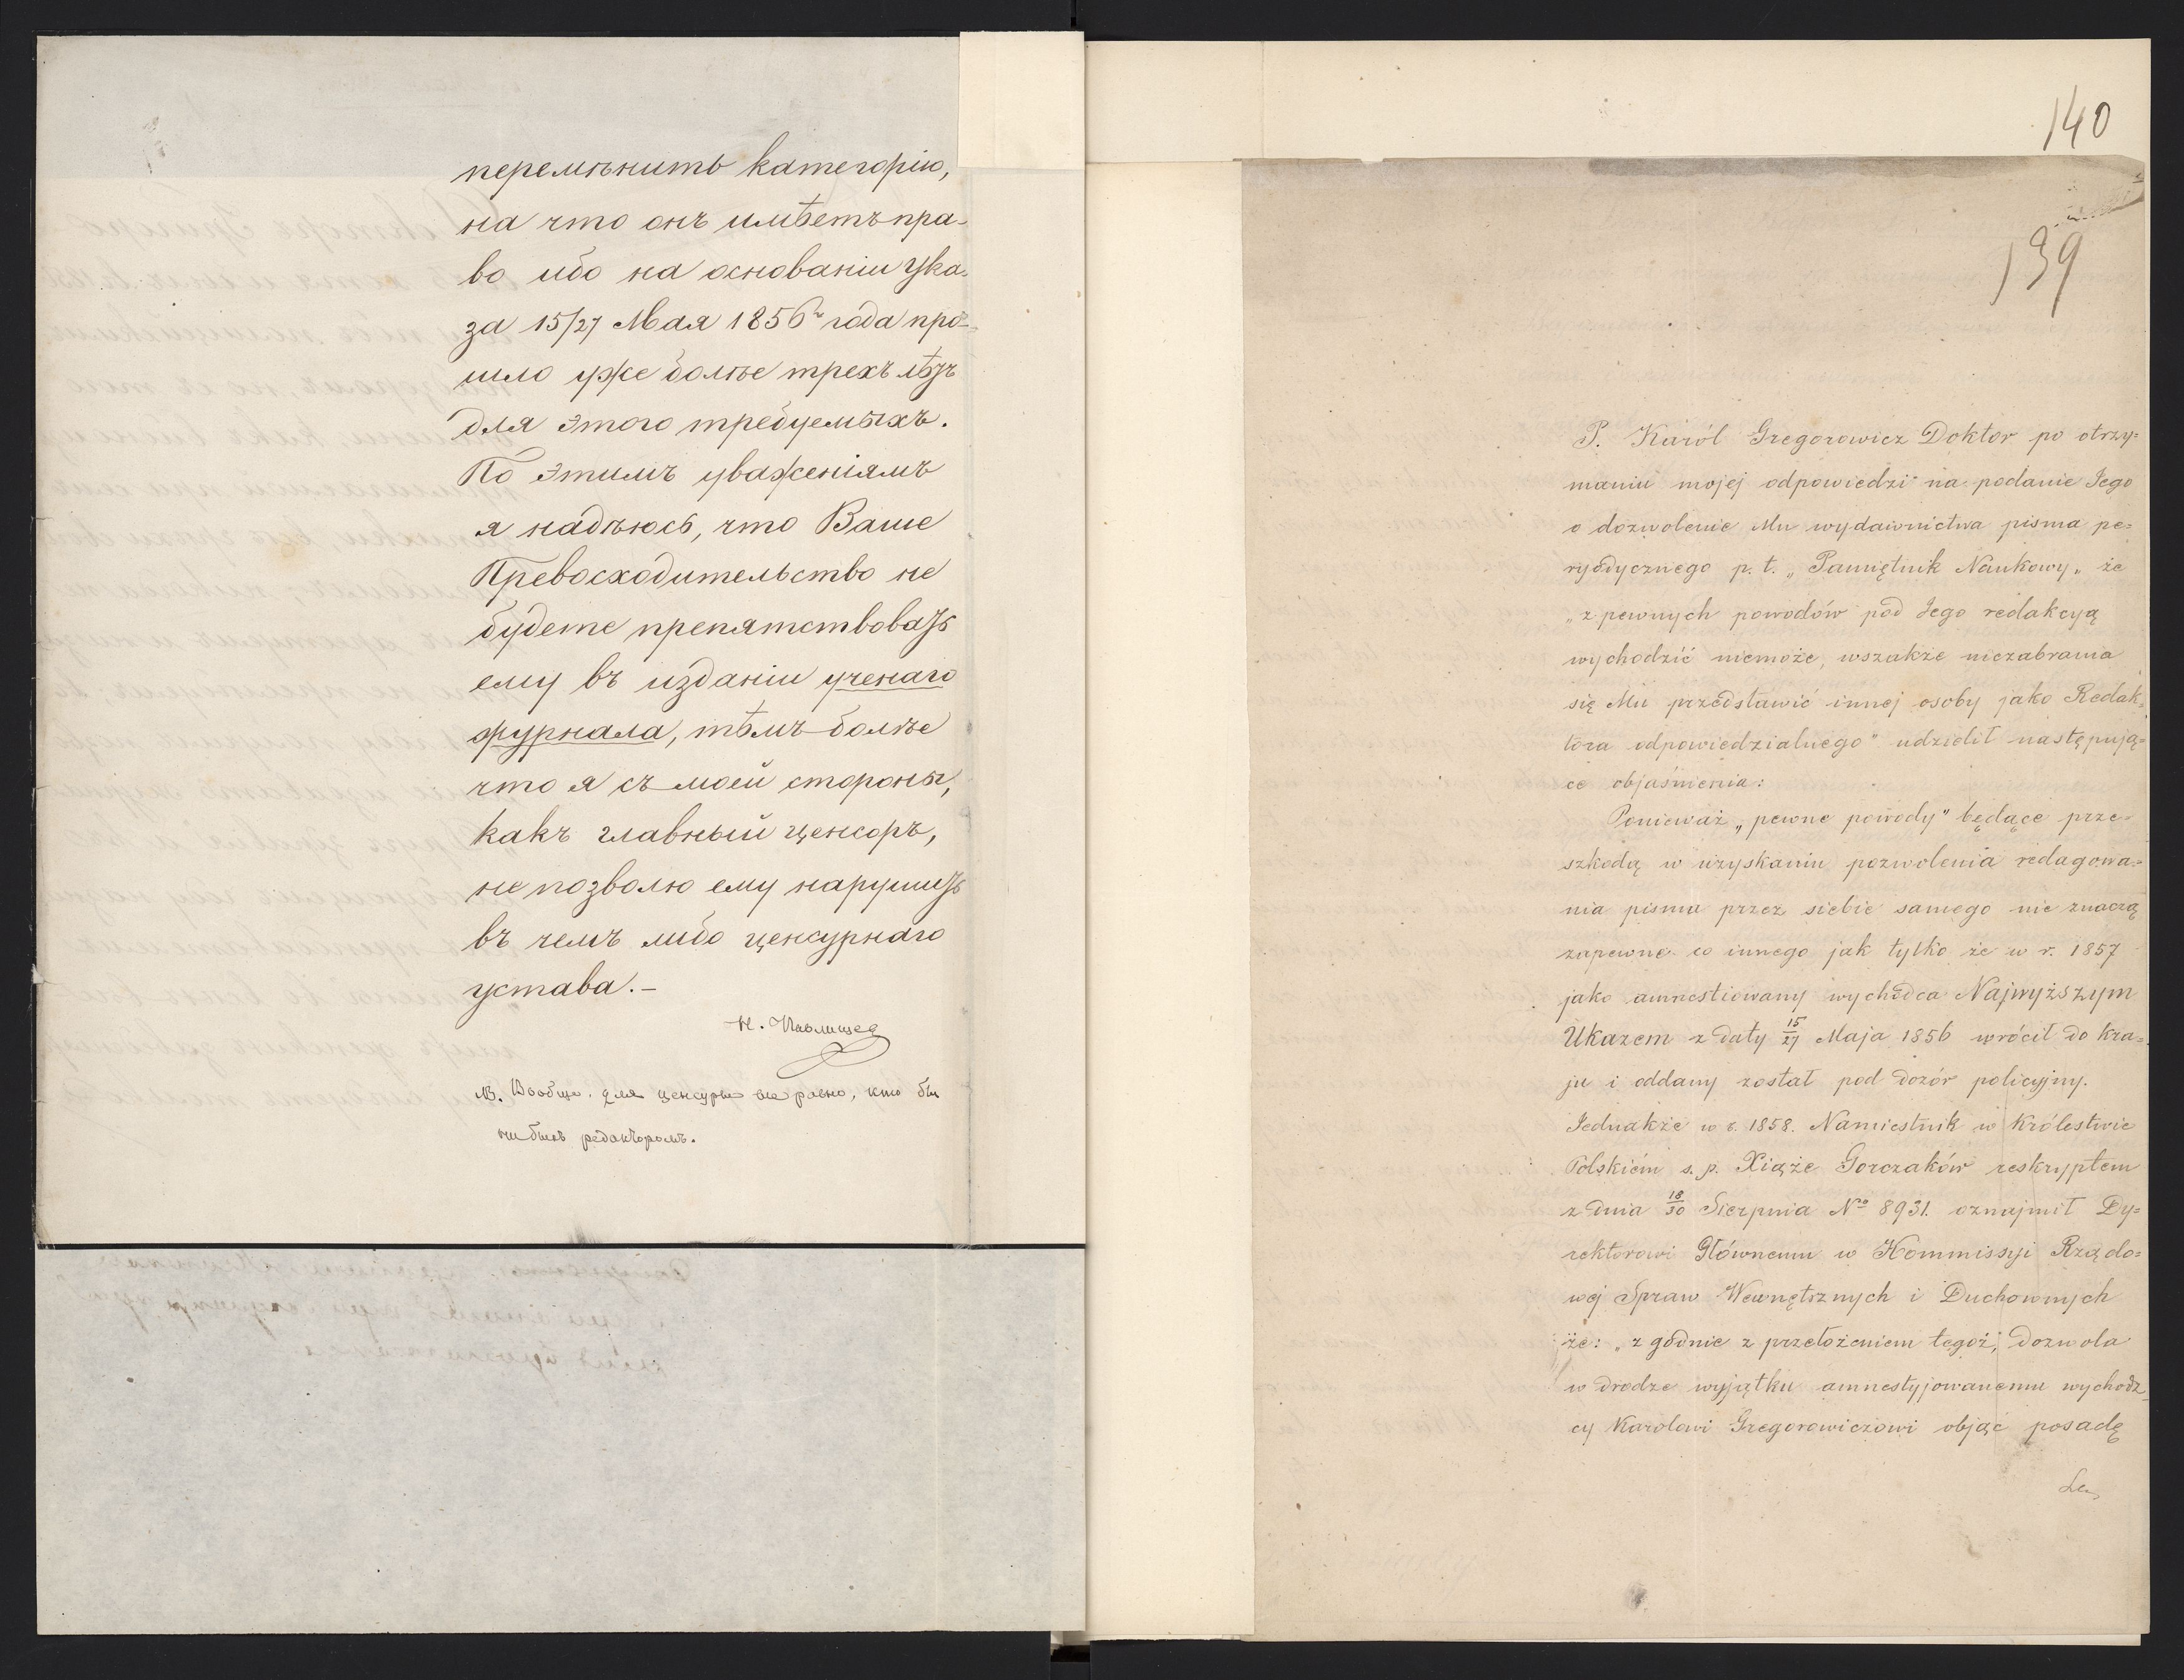 перемѣнить категорію,
на что онъ имѣетъ пра-
во ибо на основаніи Ука-
за 15/27 Мая 1856 года про-
шло уже болѣе трехъ лѣтъ
для этого требуемыхъ.
По этимъ уваженіямъ
я надѣюсь, что Ваше
Превосходительство не
будете препятствовать
ему въ изданіи ученаго
журнала, тѣмъ болѣе
что я съ моей стороны,
какъ главный ценсоръ,
не позволю ему нарушить
въ чемъ либо ценсурнаго
устава.-
Н. Павлищев
NВ. Вообще для ценсуры все равно, кто бы
ни былъ редакторомъ.
140
139
P. Karól Gregorowicz Doktor po otrzy=
maniu mojej odpowiedzi na podanie Jego
o dozwolenie Mu wydawnictwa pisma pe=
ryodycznego p. t. „Pamiętnik Naukowy„ że
„z pewnych powodów pod Jego redakcyą
wychodzić niemoże, wszakże niezabrania
się Mu przedstawić innej osoby jako Redak=
tora odpowiedzialnego" udzielił następują=
ce objaśnienia:
Ponieważ „pewne powody" będące prze=
szkodą w uzyskaniu pozwolenia redagowa=
nia pisma przez siebie samego nie znaczą
zapewne co innego jak tylko że w r. 1857
jako amnestiowany wychodca Najwyższym
Ukazem z daty 15/27 Maja 1856 wrócił do kra=
ju i oddany został pod dozór policyjny.
Jednakże w r. 1858. Namiestnik w Królestwie
Polskiém s. p. Xiąże Gorczaków reskryptem
z dnia 18/30 Sierpnia No 8931. oznajmił Dy=
rektorowi Głównemu w Kommissyi Rządo=
wej Spraw Wewnętrznych i Duchownych
że: „zgodnie z przełożeniem tegoż, dozwola
w drodze wyjątku amnestyjowanemu wychodz=
cy Karolowi Gregorowiczowi objąć posadę
Le